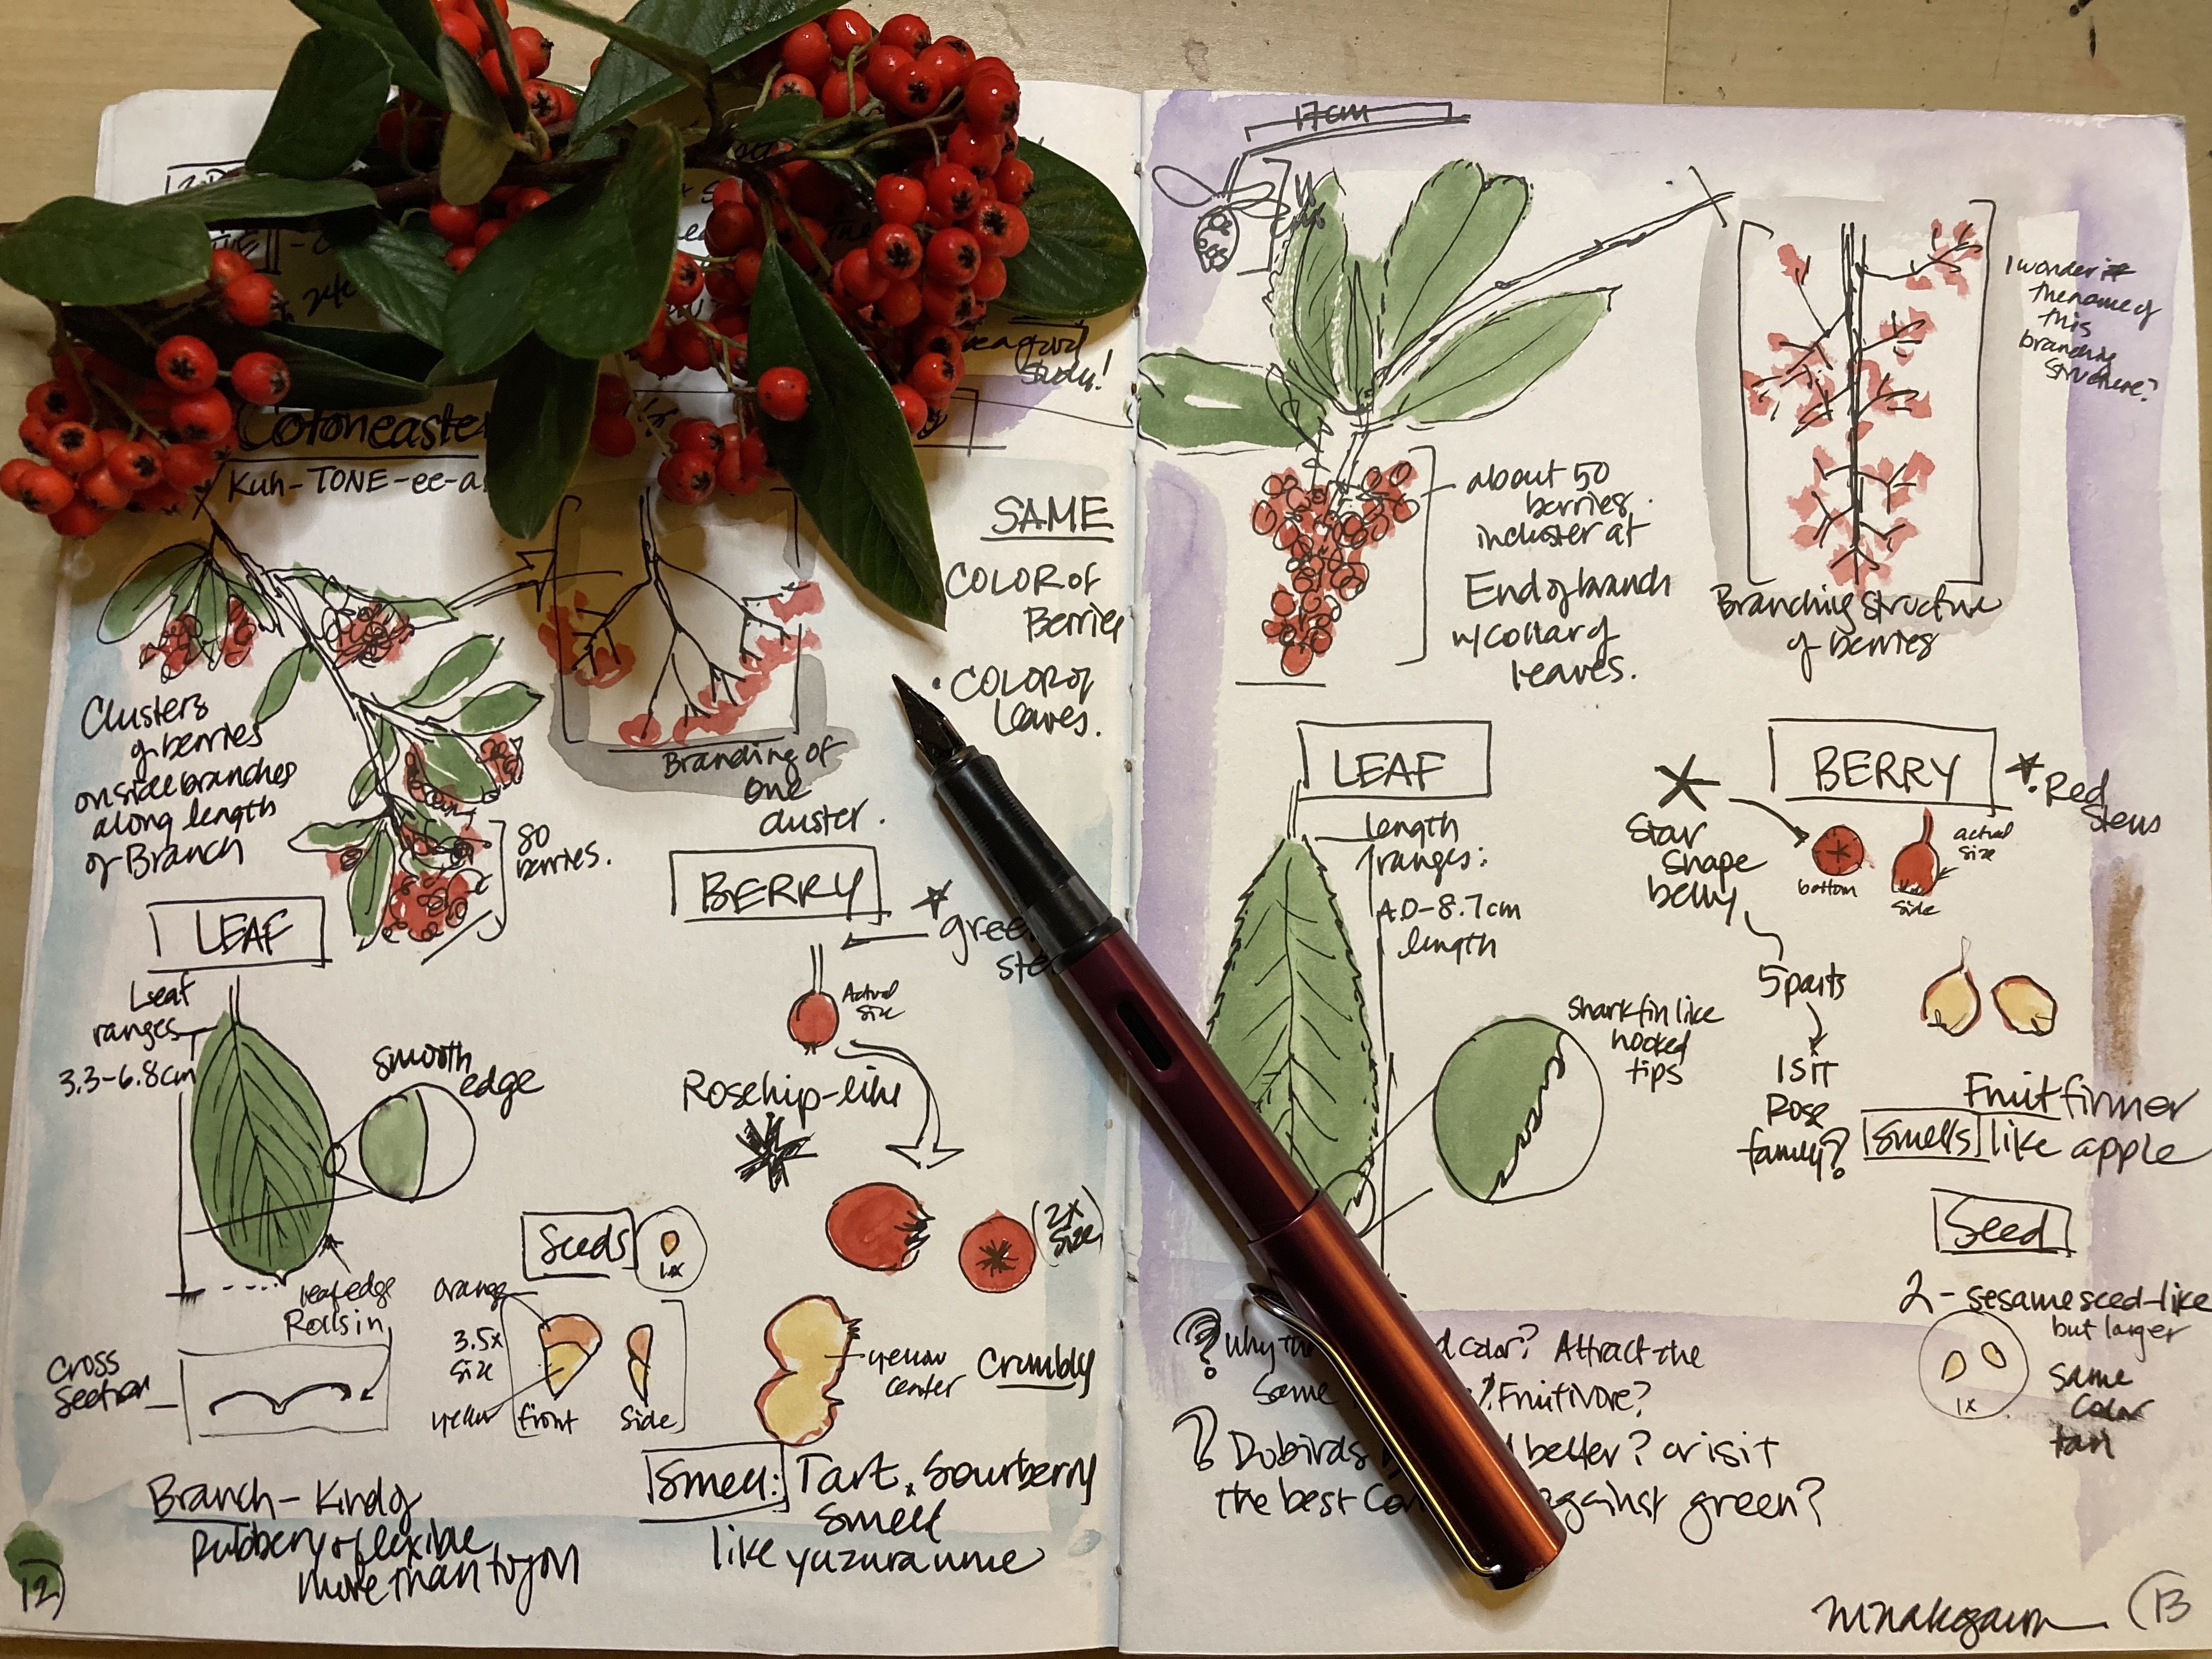 study!
Cotoneaster
Kuh-TONE-ee-a
SAME
COLOR of
Berrie
• COLOR of
leaves.
Clusters
of berries
on side branches
along length
of Branch
80
berries.
Branching of
one
cluster.
LEAF
Leaf
ranges
3.3-6.8cm
smooth
edge
leaf edge
Rolls in
Cross
Section
BERRY
gree
ste
Actual
size
Rosehip-like
(2x
size)
Seeds
1x
orange
3.5x
size
yellow
front
side
yellow
center
Crumbly
Smell: Tart, sourberry
smell
like yuzura ume
Branch - Kind of
rubbery + flexible
more than toyon
12)
17cm
about 50
berries.
in cluster at
End of branch
w/ collar of
leaves.
I wonder
the name of
this
branching
structure?
Branching structure
of berries
LEAF
length
ranges:
4.0-8.7cm
length
Shark fin like
hooked
tips
BERRY
Red
Stems
Star
shape
belly
bottom
actual
size
side
5 parts
Is it
Rose
family?
Fruit firmer
Smells like apple
Seed
2 - sesame seed-like
but larger
1x
same
color
tan
? Why th d color? Attract the
same ? Fruitivore?
? Do birds better? or is it
the best Con against green?
(13